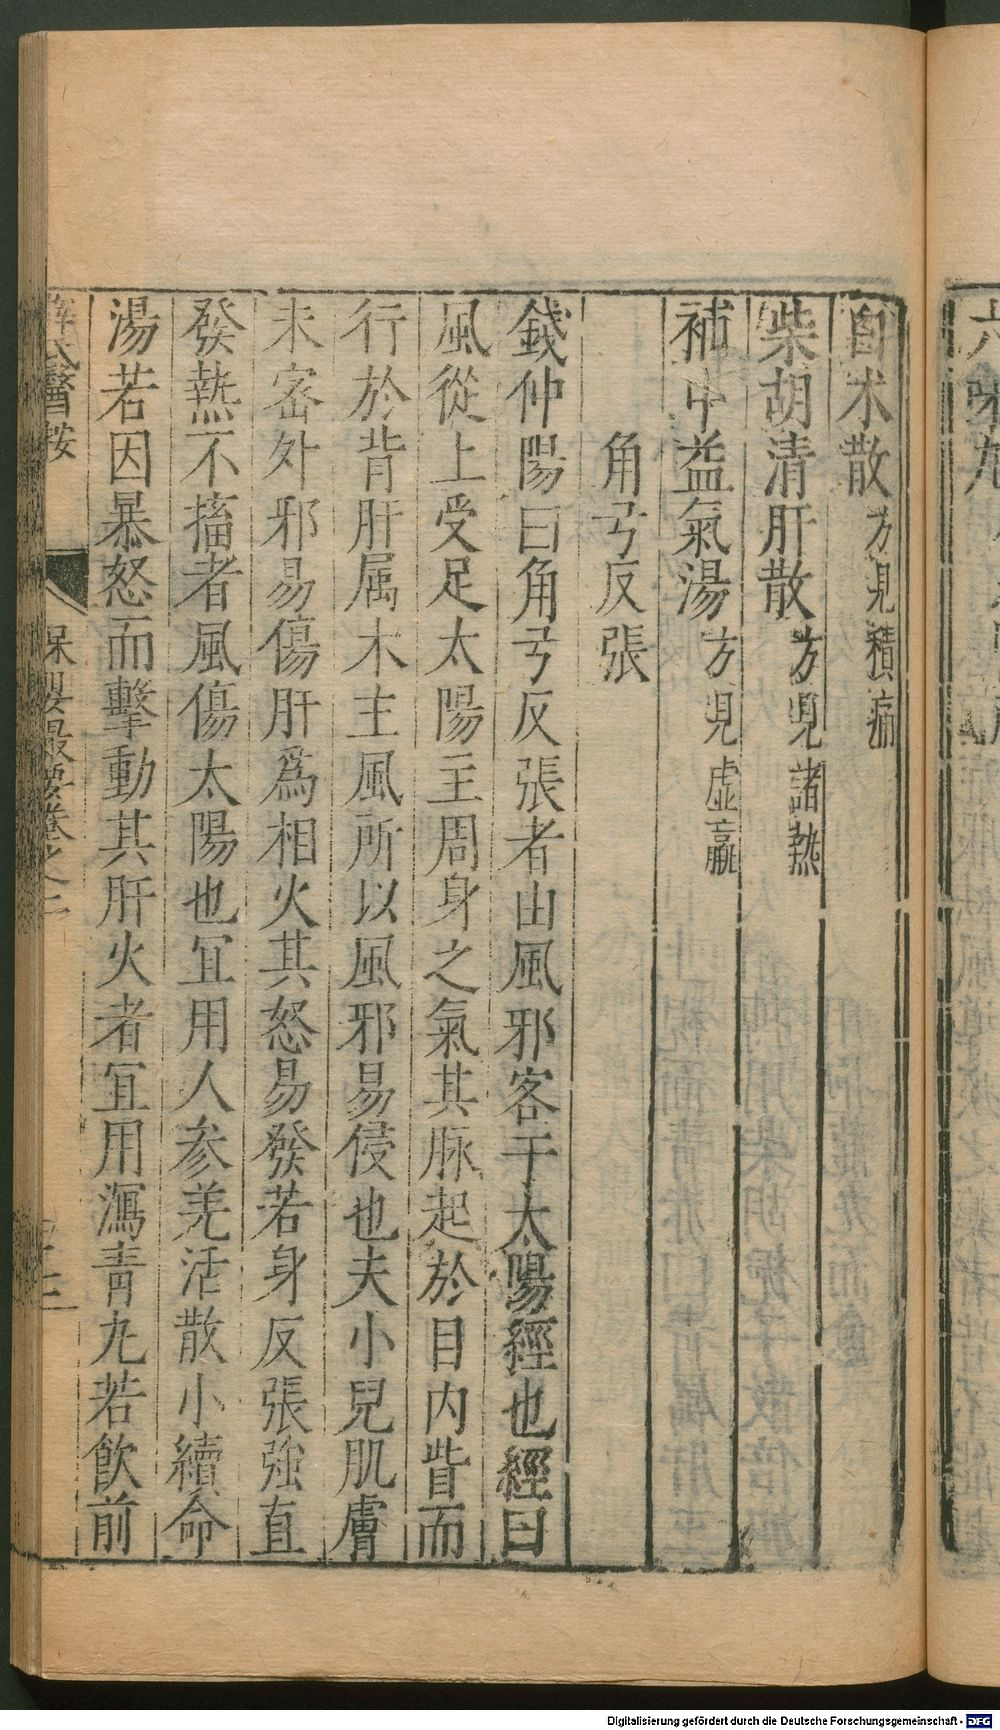 白朮散方見積痛
柴胡清肝散方見諸熱
補中益氣湯方見虛羸
角弓反張
錢仲陽曰角弓反張者由風邪客于太陽經也經曰
風從上受足太陽主周身之氣其脉起於目内眥而
行於背肝属木主風所以風邪易侵也夫小兒肌膚
未密外邪易傷肝爲相火其怒易發若身反張強直
發熱不搐者風傷太陽也冝用人参羌活散小續命
湯若因暴怒而擊動其肝火者冝用瀉青丸若飲前
薛氏醫按
保嬰最要卷之二
Digitalisierung gefördert durch die Deutsche Forschungsgemeinschaft - DFG